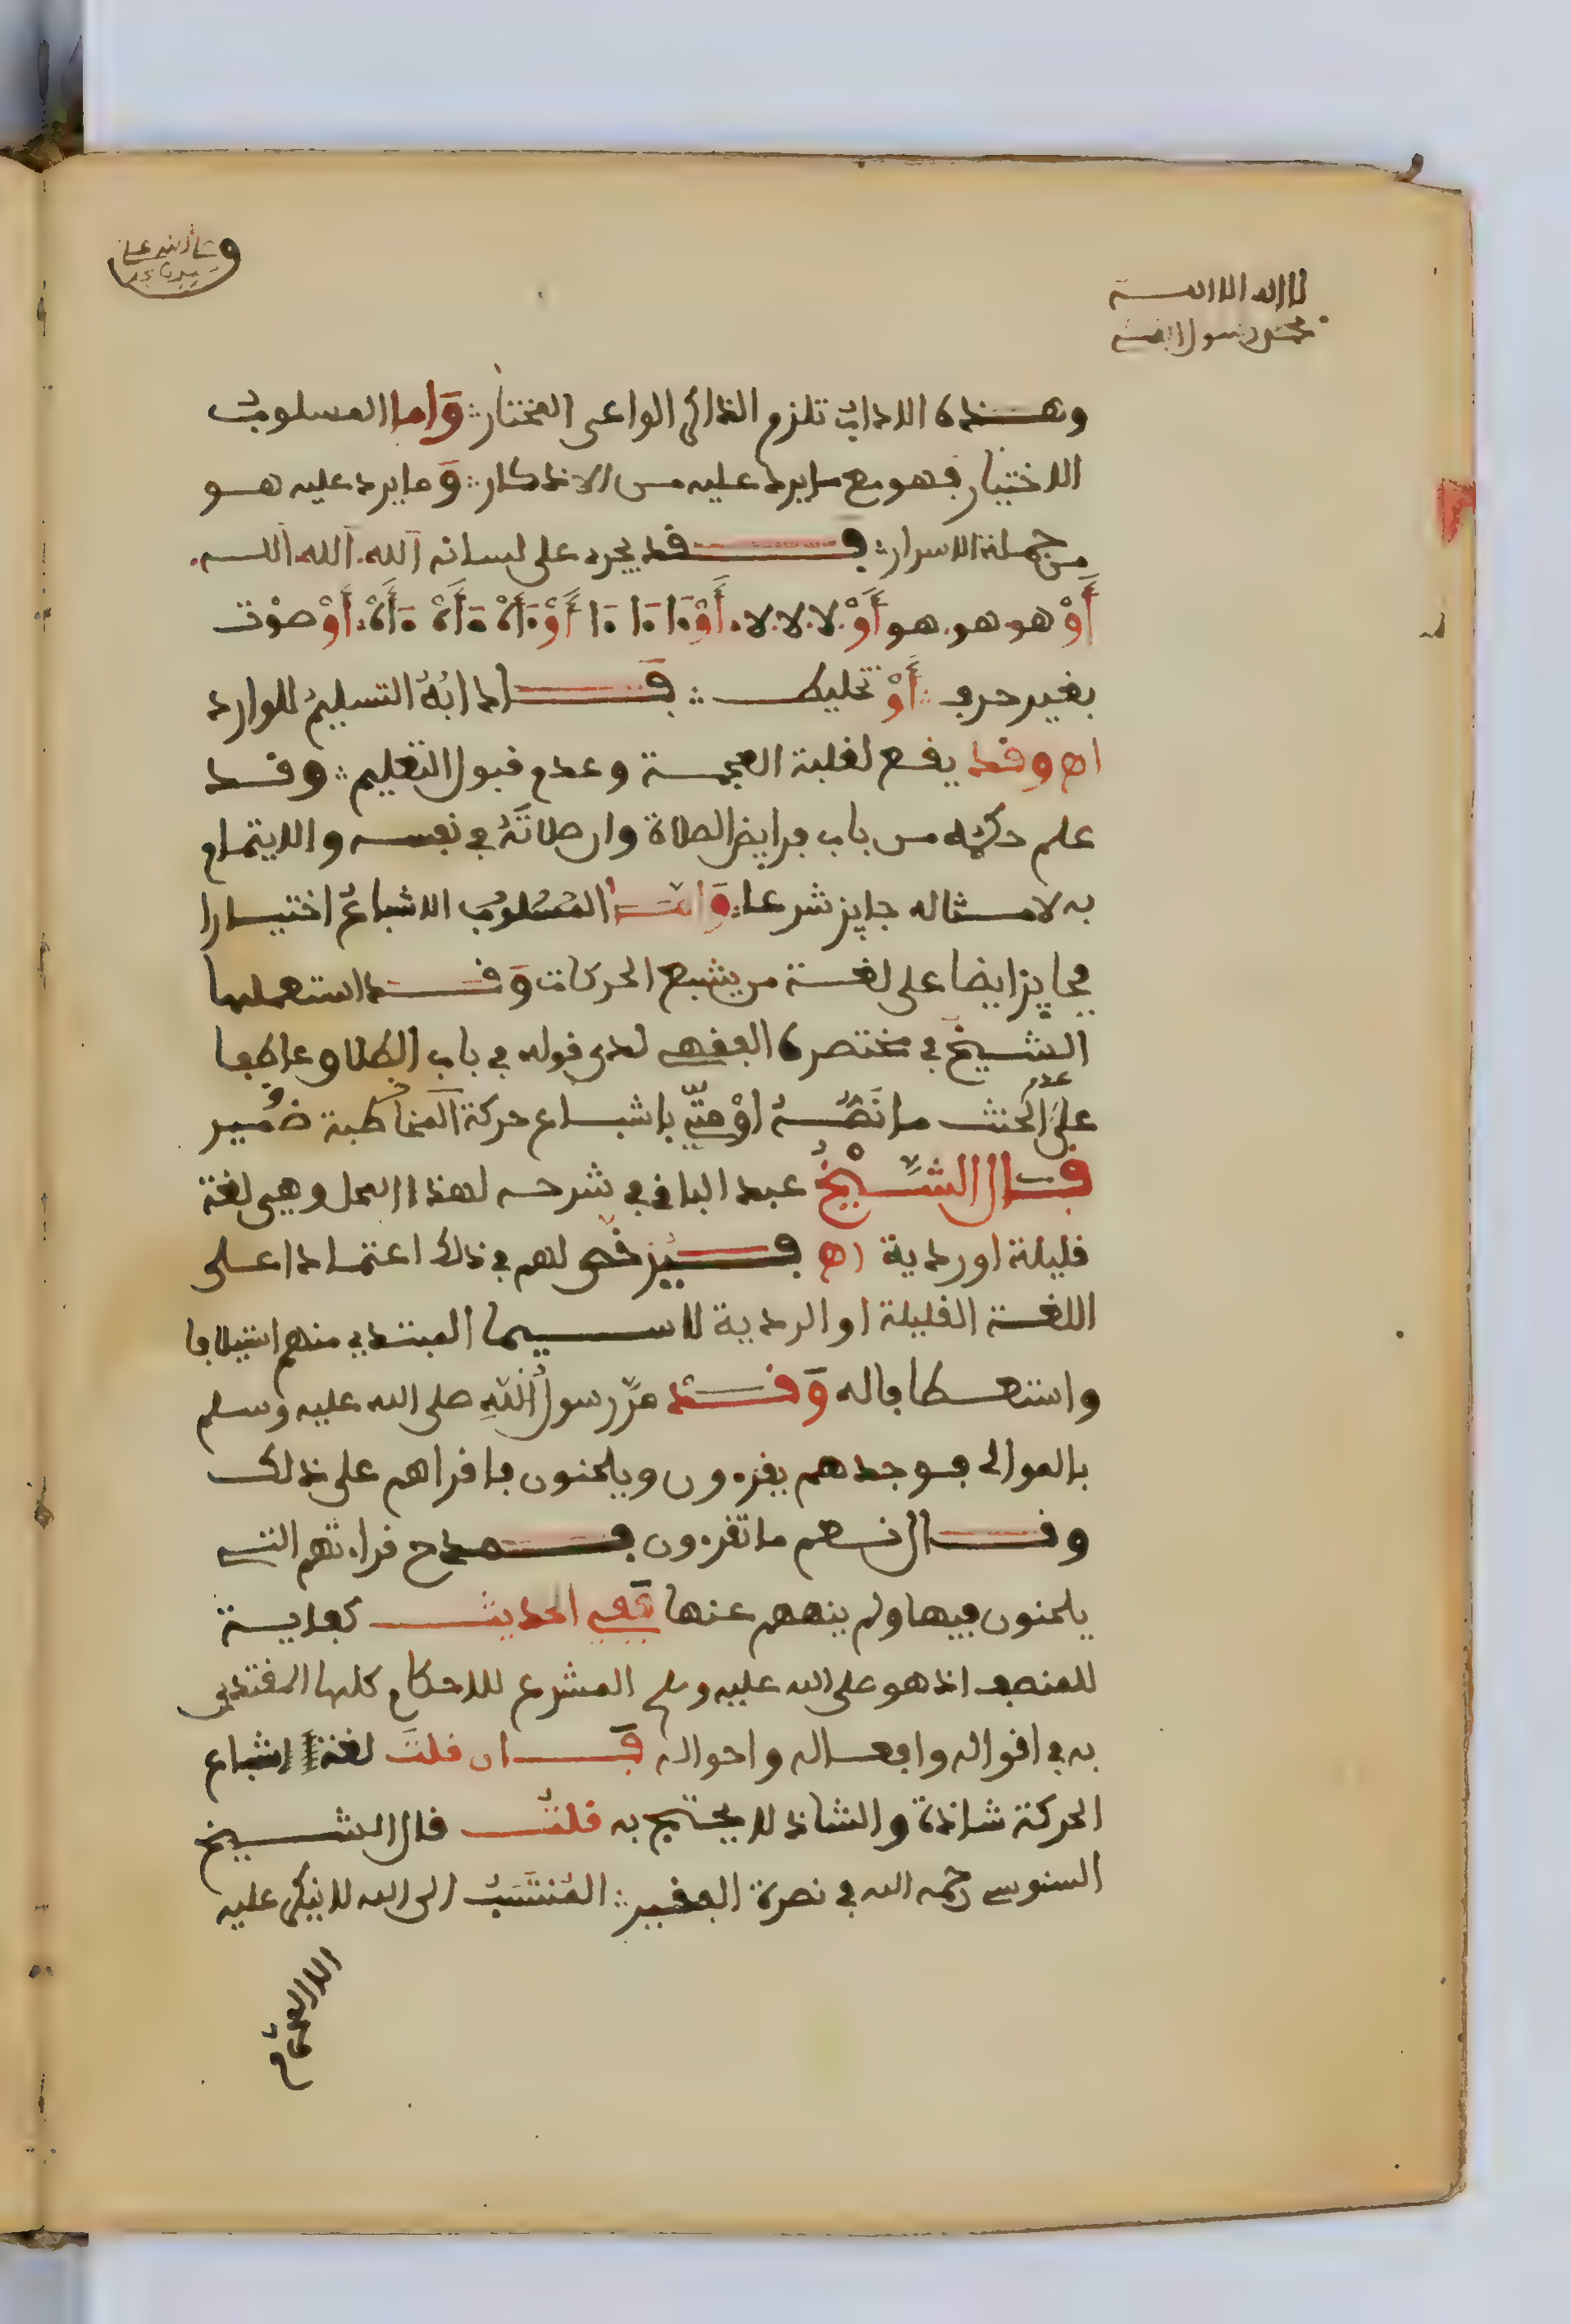 لا اله الا الله
محمد رسول الله
وصلى الله على
سيدنا محمد
وهذه الاداب تلزم الذاكر الواعي المختار؛ وَاما المسلوبُ
الاختيار فهو مع ما يرد عليه من الاذكار؛ وَما يرد عليه هو
من جملة الاسرار؛ فقد يجرى على لسانه الله. الله. الله.
أَوْ هو هو. هو أَوْ. لا. لا. لا. أَوْ ءَا ءَا ءَا أَوْ ءَاهْ ءَاهْ ءَاهْ. أَوْ صوْت
بغير حرف؛ أَوْ تخليط؛ فَادابُهُ التسليمُ للوارد
اه وقد يقع لغلبة العجمة وعدم قبول التعليم؛ وقد
علم حكمه من باب فرايض الصلاة وان صلاتَهُ في نفسه والايتمام
به لامثاله جايز شرعا؛ وَامَّا المسْلوبُ الاشباعُ اختيارا
فجايز ايضا على لغة من يشبع الحركات وَقد استعملها
الشيخ في مختصره الفقهي لدى قوله في باب الطلاق عاطفا
على عدم الحنث ما نَصُّهُ اوْ متِّ باشباع حركة المخاطبة ضمير
قال الشَّيْخُ عبد الباقي في شرحه لهذا المحل وهي لغة
قليلة او ردية اه فيُرخَّص لهم في ذلك اعتمادا على
اللغة القليلة او الردية لاسيما المبتدي منهم ايتلافا
واستعطافا له وَقد مرَّ رسولُ اللهِ صلى الله عليه وسلم
بالموالي فوجدهم يقرءون ويلحنون فاقراهم على ذلك
وقال نعم ما تقرءون فمدح قراءتهم التي
يلحنون فيها ولم ينههم عنها فَفِي الحديث كفاية
للمنصف اذ هو صلى الله عليه وسلم المشرع للاحكام كلها المقتدى
به في اقواله وافعاله واحواله فَان قلتَ لغة اشباع
الحركة شاذة والشاذ لا يحتج به قلتُ قال الشيخ
السنوسي رحمه الله في نصرة الفقير؛ المُنتَسَبُ الى الله لا ينكر عليه